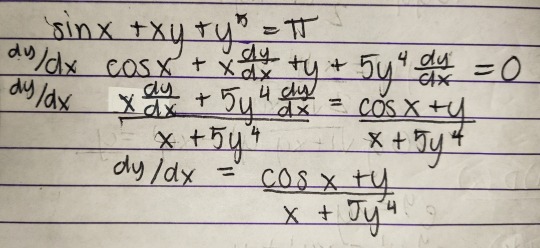 sinx + xy + y⁵ = π
dy/dx cosx + x dy/dx + y + 5y⁴ dy/dx = 0
dy/dx x dy/dx + 5y⁴ dy/dx = cosx + y
x + 5y⁴ x + 5y⁴
dy/dx = cos x + y
x + 5y⁴